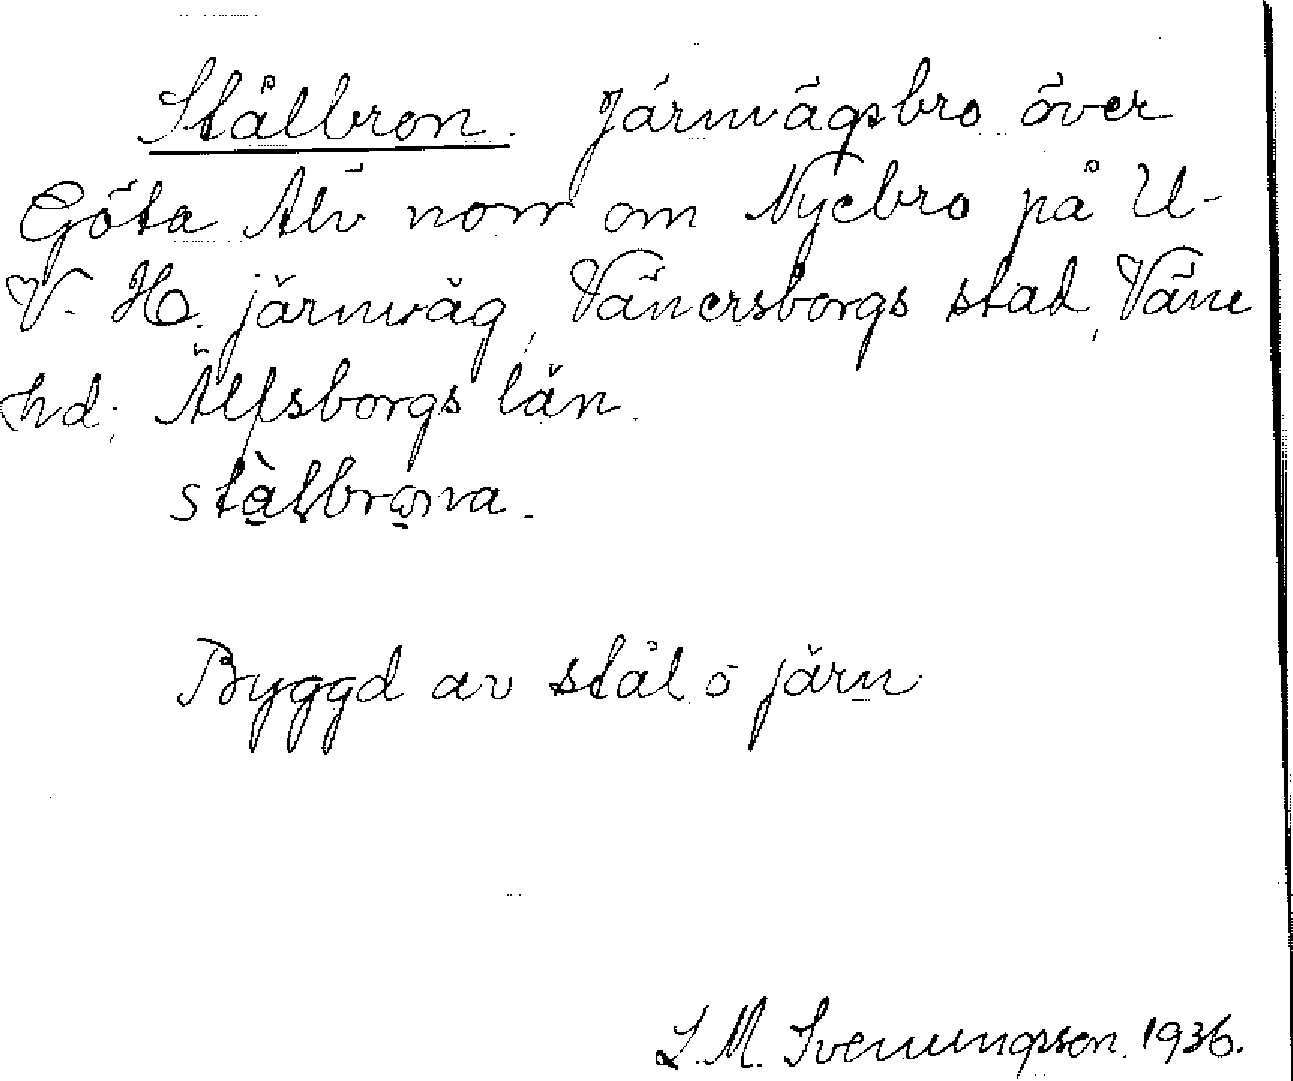 Stålbron. Järnvägsbro över
Göta Älv norr om Nyebro på U-
V. H. järnväg, Vänersborgs stad, Väne
hd; Älfsborgs län.
stålbrona.
Byggd av stål o järn
L. M. Svenungsson. 1936.